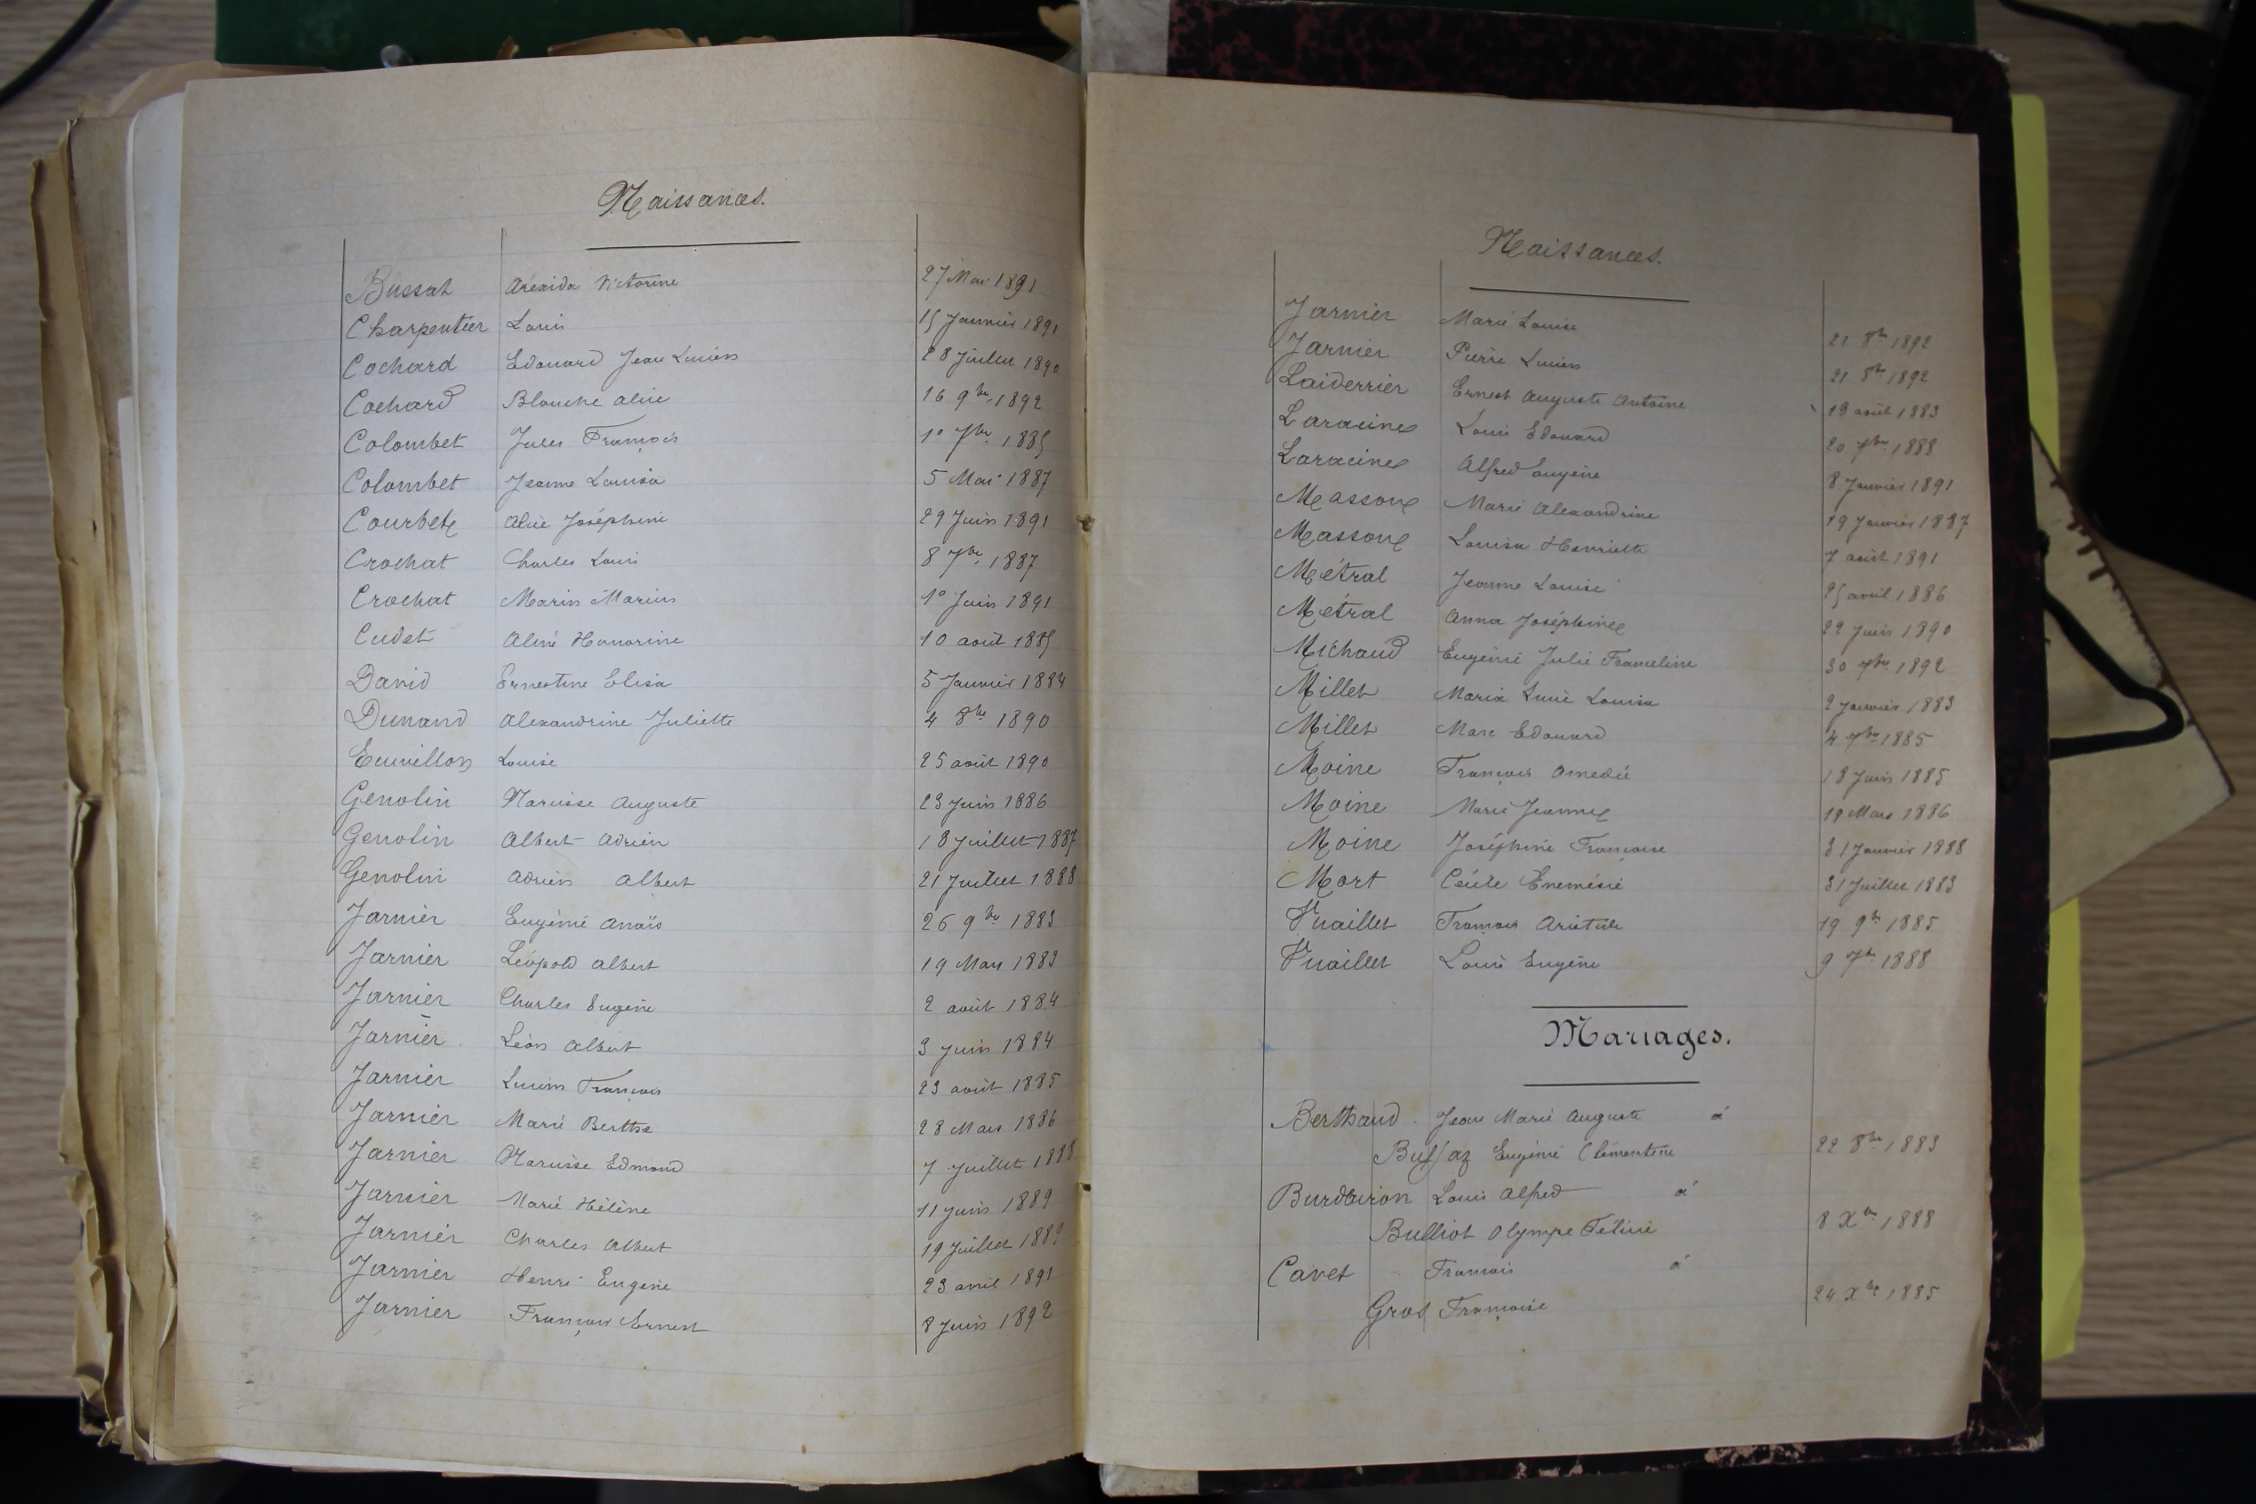 Naissances.
Bussat Aréxida Victorine 27 Mai 1891
Charpentier Louis 15 Janvier 1891
Cochard Edouard Jean Lucien 28 Juillet 1890
Cochard Blanche Alice 16 9bre 1892
Colombet Jules François 1o 7bre 1885
Colombet Jeanne Louisa 5 Mai 1887
Courbet Alice Joséphine 29 Juin 1891
Crochat Charles Louis 8 7bre 1887
Crochat Marin Marius 1o Juin 1891
Cudet Aliné Honorine 10 août 1885
David Ernestine Elisa 5 Janvier 1884
Dunand Alexandrine Juliette 4 8bre 1890
Euvillon Louise 25 août 1890
Genolin Narcisse Auguste 23 Juin 1886
Genolin Albert Adrien 18 Juillet 1887
Genolin Adrien Albert 21 Juillet 1888
Jarnier Eugénie Anaïs 26 9bre 1883
Jarnier Léopold Albert 19 Mars 1883
Jarnier Charles Eugène 2 août 1884
Jarnier Léon Albert 3 Juin 1884
Jarnier Lucien François 23 août 1885
Jarnier Marie Berthe 28 Mars 1886
Jarnier Narcisse Edmond 7 Juillet 1888
Jarnier Marie Hélène 11 Juin 1889
Jarnier Charles Albert 19 Juillet 1889
Jarnier Henri Eugène 23 avril 1891
Jarnier François Ernest 8 Juin 1892
Naissances.
Jarnier Marie Louise 21 8bre 1892
Jarnier Pierre Lucien 21 8bre 1892
Laiderrier Ernest Auguste Antoine 19 août 1883
Laracine Louis Edouard 20 7bre 1888
Laracine Alfred Eugène 8 Janvier 1891
Masson Marie Alexandrine 19 Janvier 1887
Masson Louisa Henriette 7 août 1891
Métral Jeanne Louise 25 avril 1886
Métral Anna Joséphine 22 Juin 1890
Michaud Eugénie Julie Franceline 30 7bre 1892
Millet Maria Lucie Louisa 2 Janvier 1883
Millet Marc Edouard 4 7bre 1885
Moine François Amedée 18 Juin 1885
Moine Marie Jeanne 18 Mars 1886
Moine Joséphine Françoise 31 Janvier 1888
Mort Cécile Enemésie 31 Juillet 1883
Vuaillet François Aristide 19 9bre 1885
Vuaillet Louis Eugène 9 7bre 1888
Mariages.
Berthaud Jean Marie Auguste à
Buffaz Eugénie Clémentine 22 8bre 1883
Burdairon Louis Alfred à
Bulliot Olympe Féline 8 Xbre 1888
Cavet François à
Gros Françoise 24 Xbre 1885